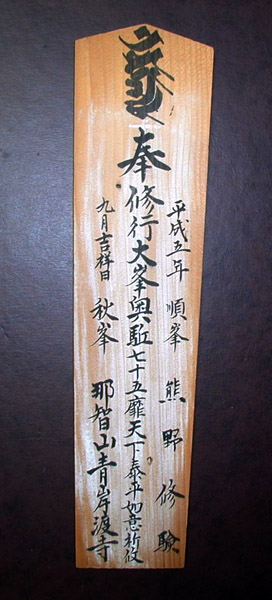 奉修行大峯奥駈七十五靡天下泰平如意祈攸
平成五年 順峯 熊野修験
九月吉祥日 秋峯 那智山青岸渡寺